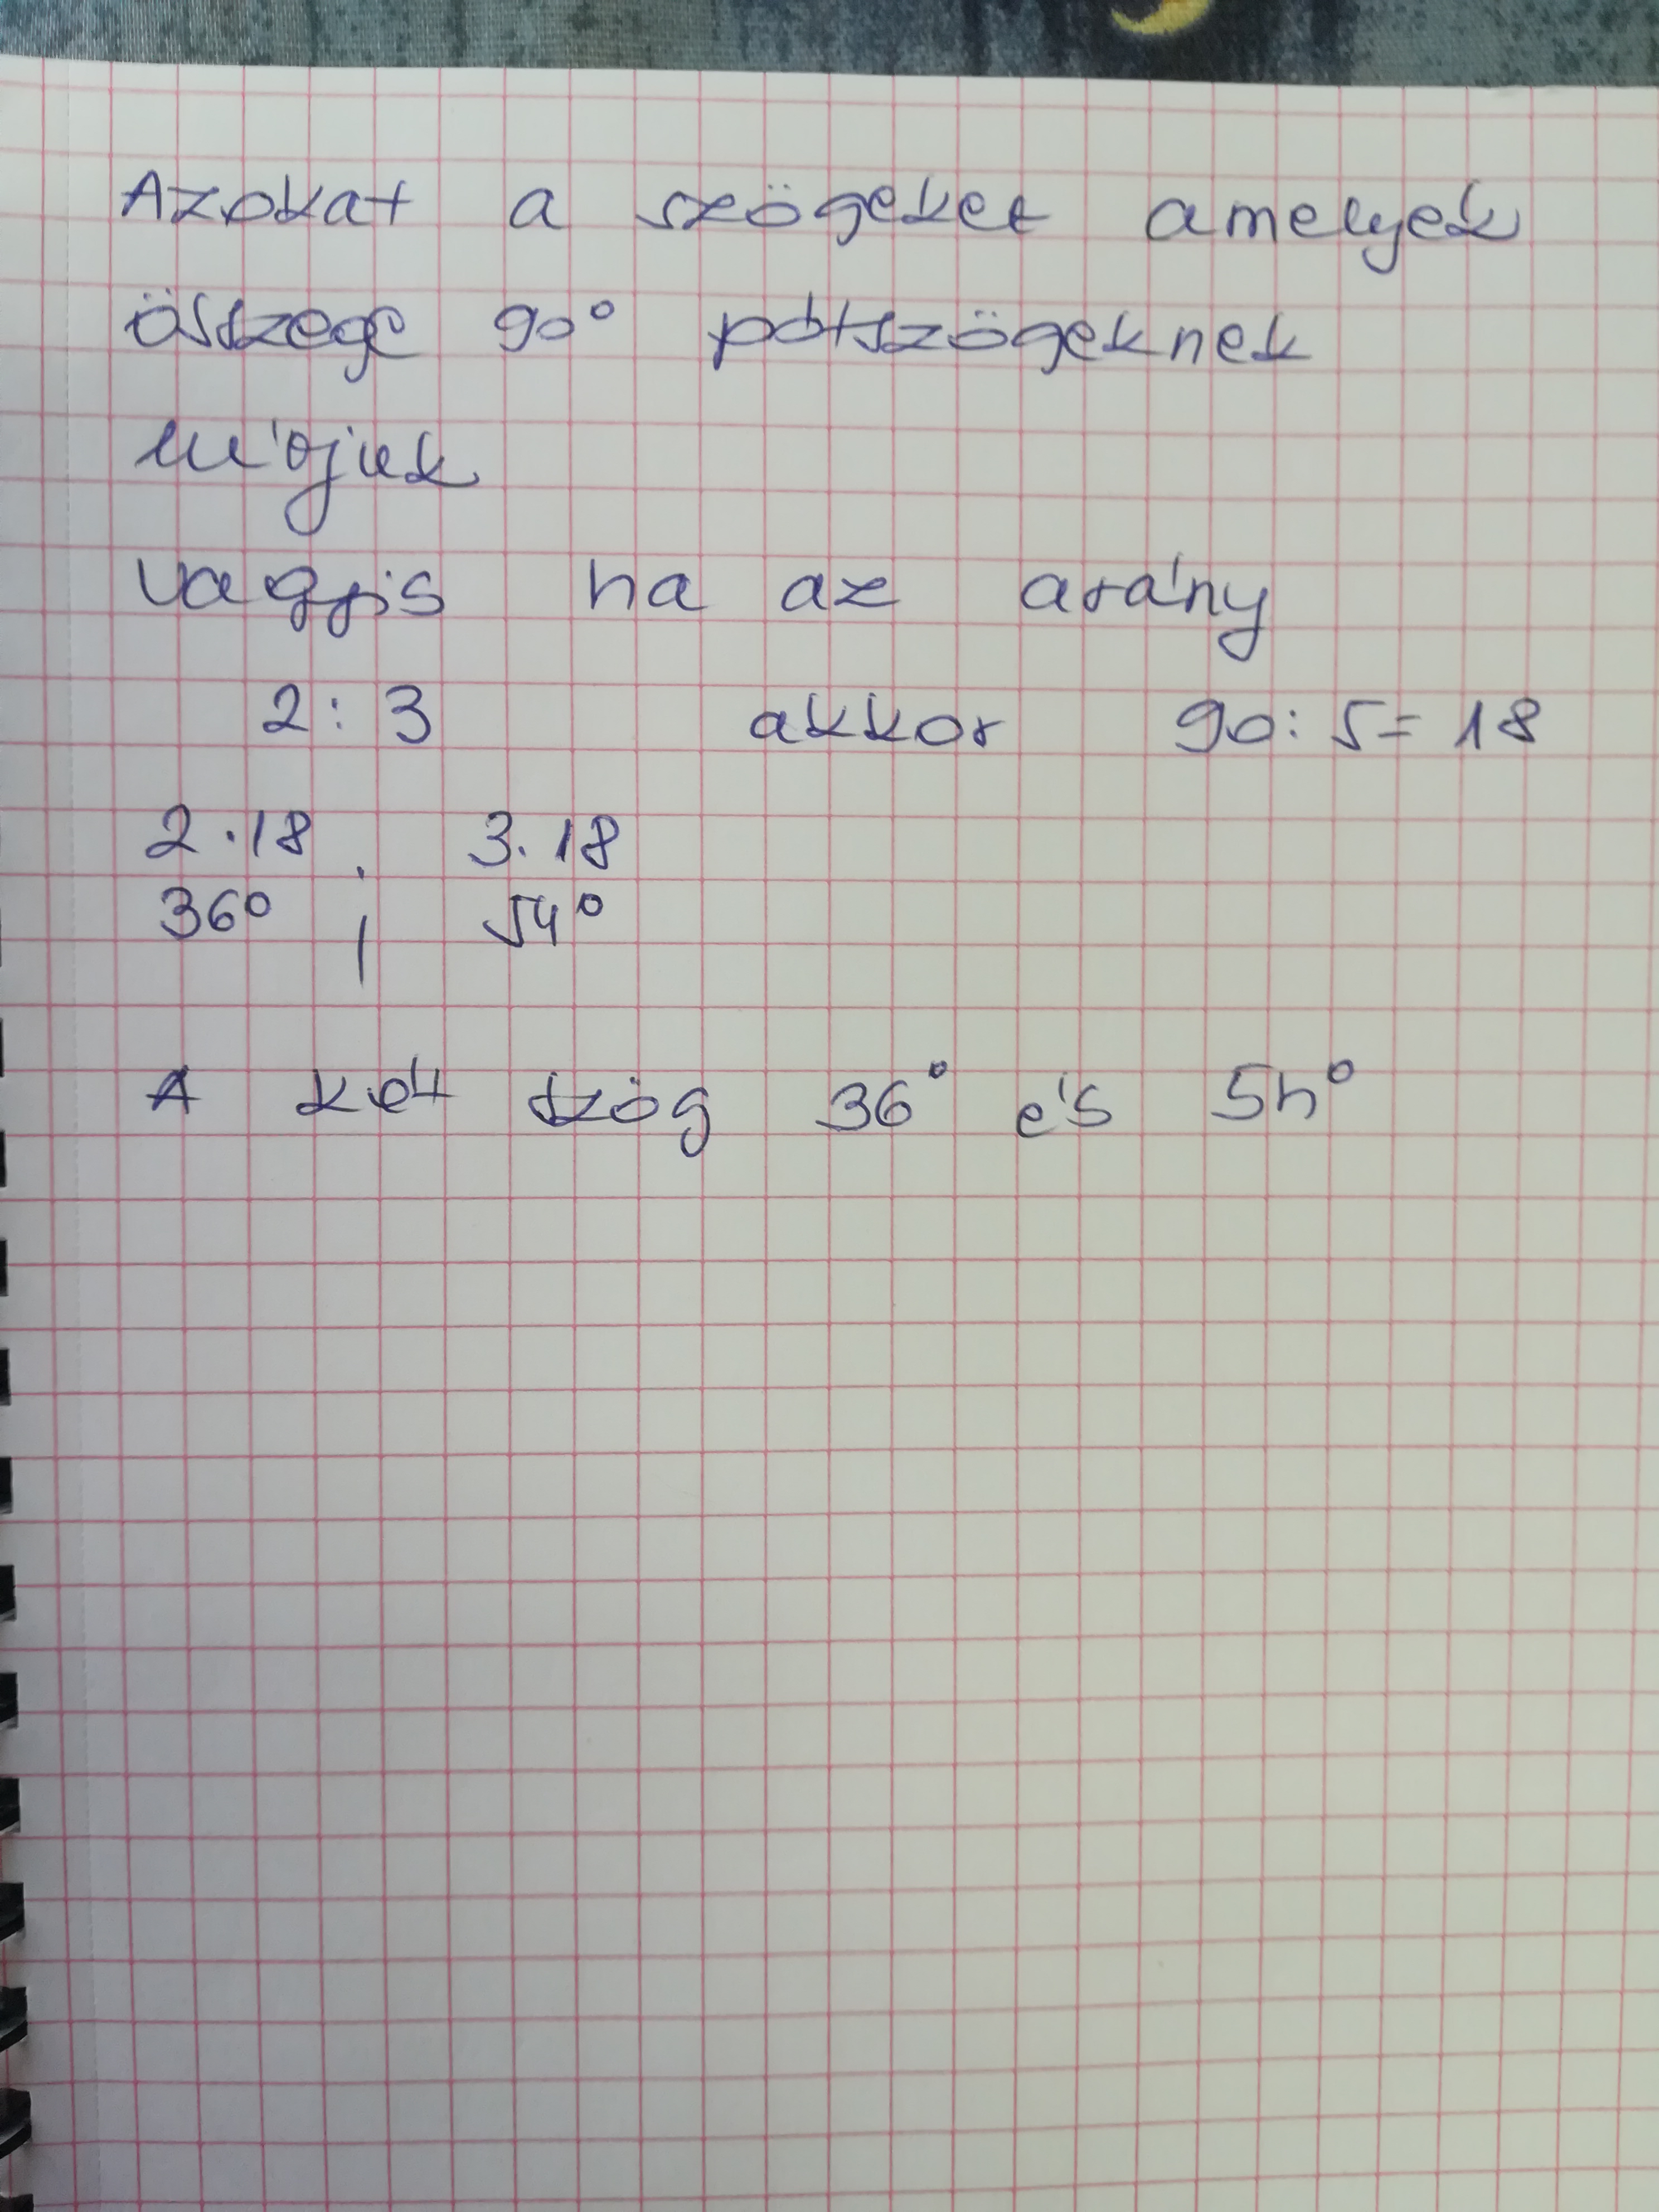 Azokat a szögeket amelyek
összege 90° pótszögeknek
hívjuk
vagyis ha az arány
2:3 akkor 90:5=18
2·18 ; 3·18
36° ; 54°
A két szög 36° és 54°